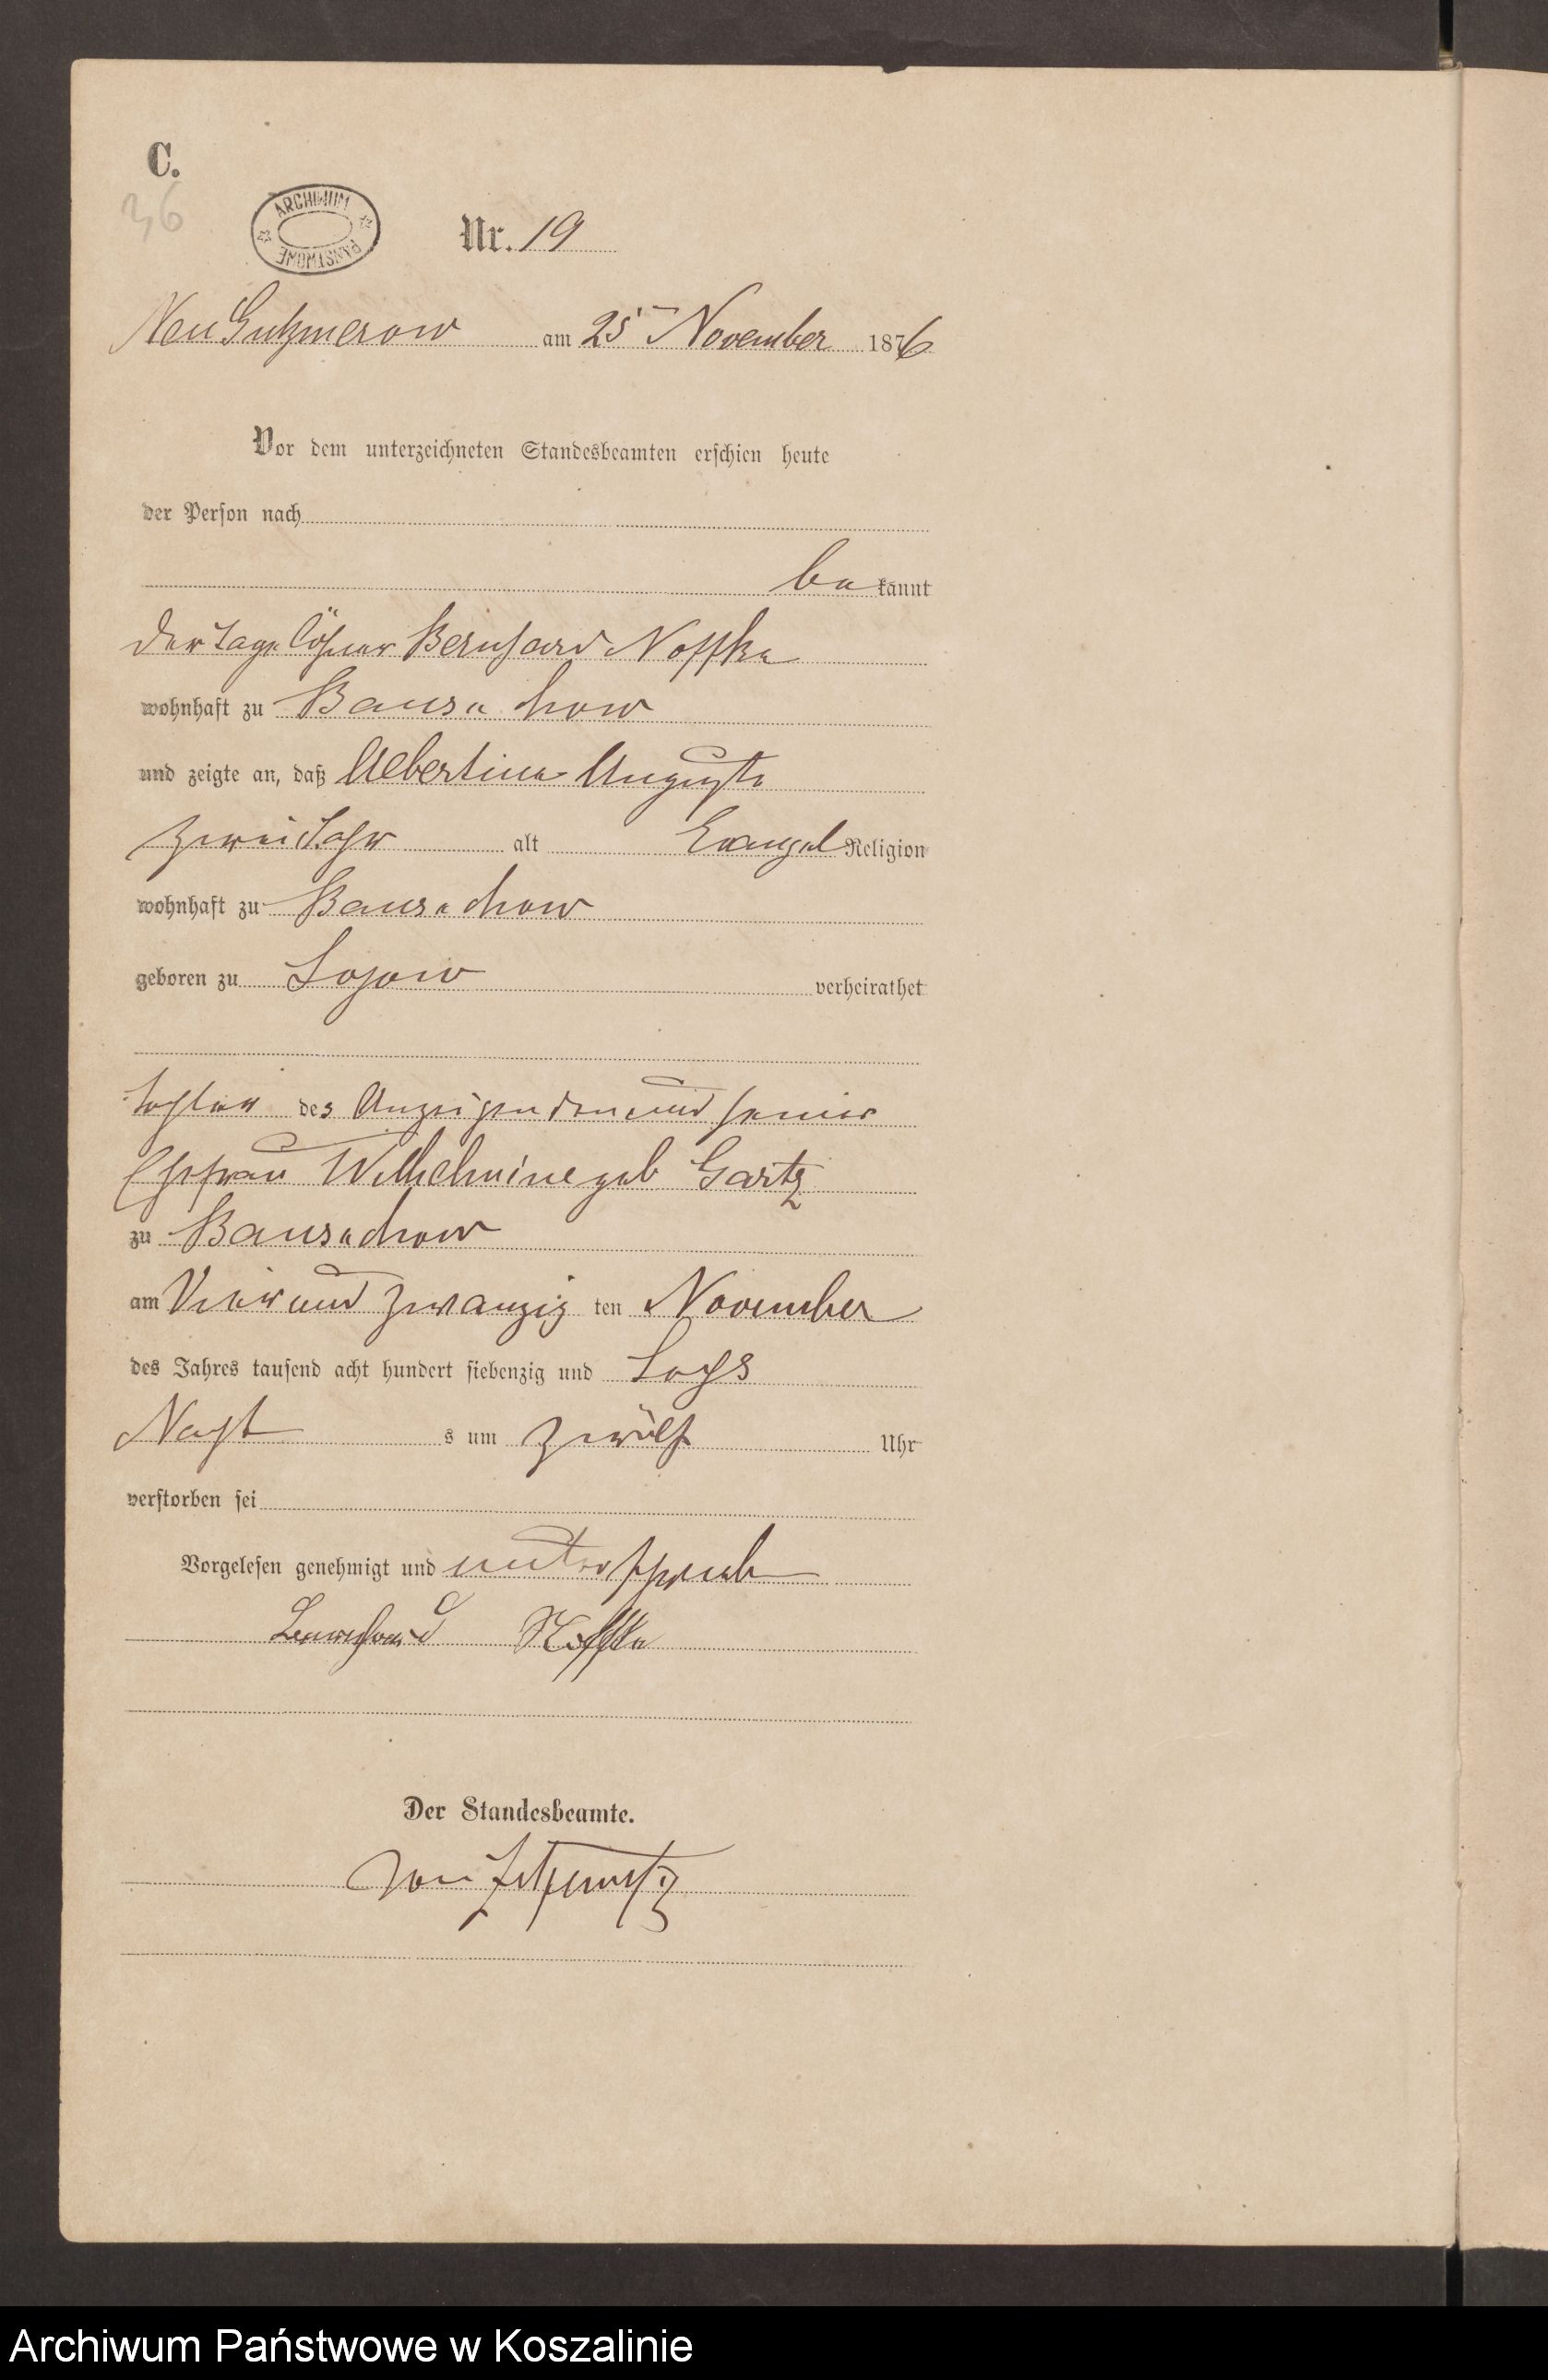 C.
36
ARCHIWUM
PAŃSTWOWE
Nr. 19
Neu Gutzmerow am 25ten November 1876
Vor dem unterzeichneten Standesbeamten erschien heute
der Person nach
be kannt
der Tagelöhner Bernhard Noffke
wohnhaft zu
und zeigte an, daß Albertine Auguste
zwei Jahr alt Evangel Religion
wohnhaft zu
geboren zu verheirathet
Tochter des Anzeigenden und seiner
Ehefrau Wilhelmine geb Gartz
zu
am Vier und zwanzig ten November
des Jahres tausend acht hundert siebenzig und sechs
Nacht s um zwölf Uhr
verstorben sei
Vorgelesen genehmigt und unterschrieb
Bernhard Noffke
Der Standesbeamte.
von
Archiwum Państwowe w Koszalinie